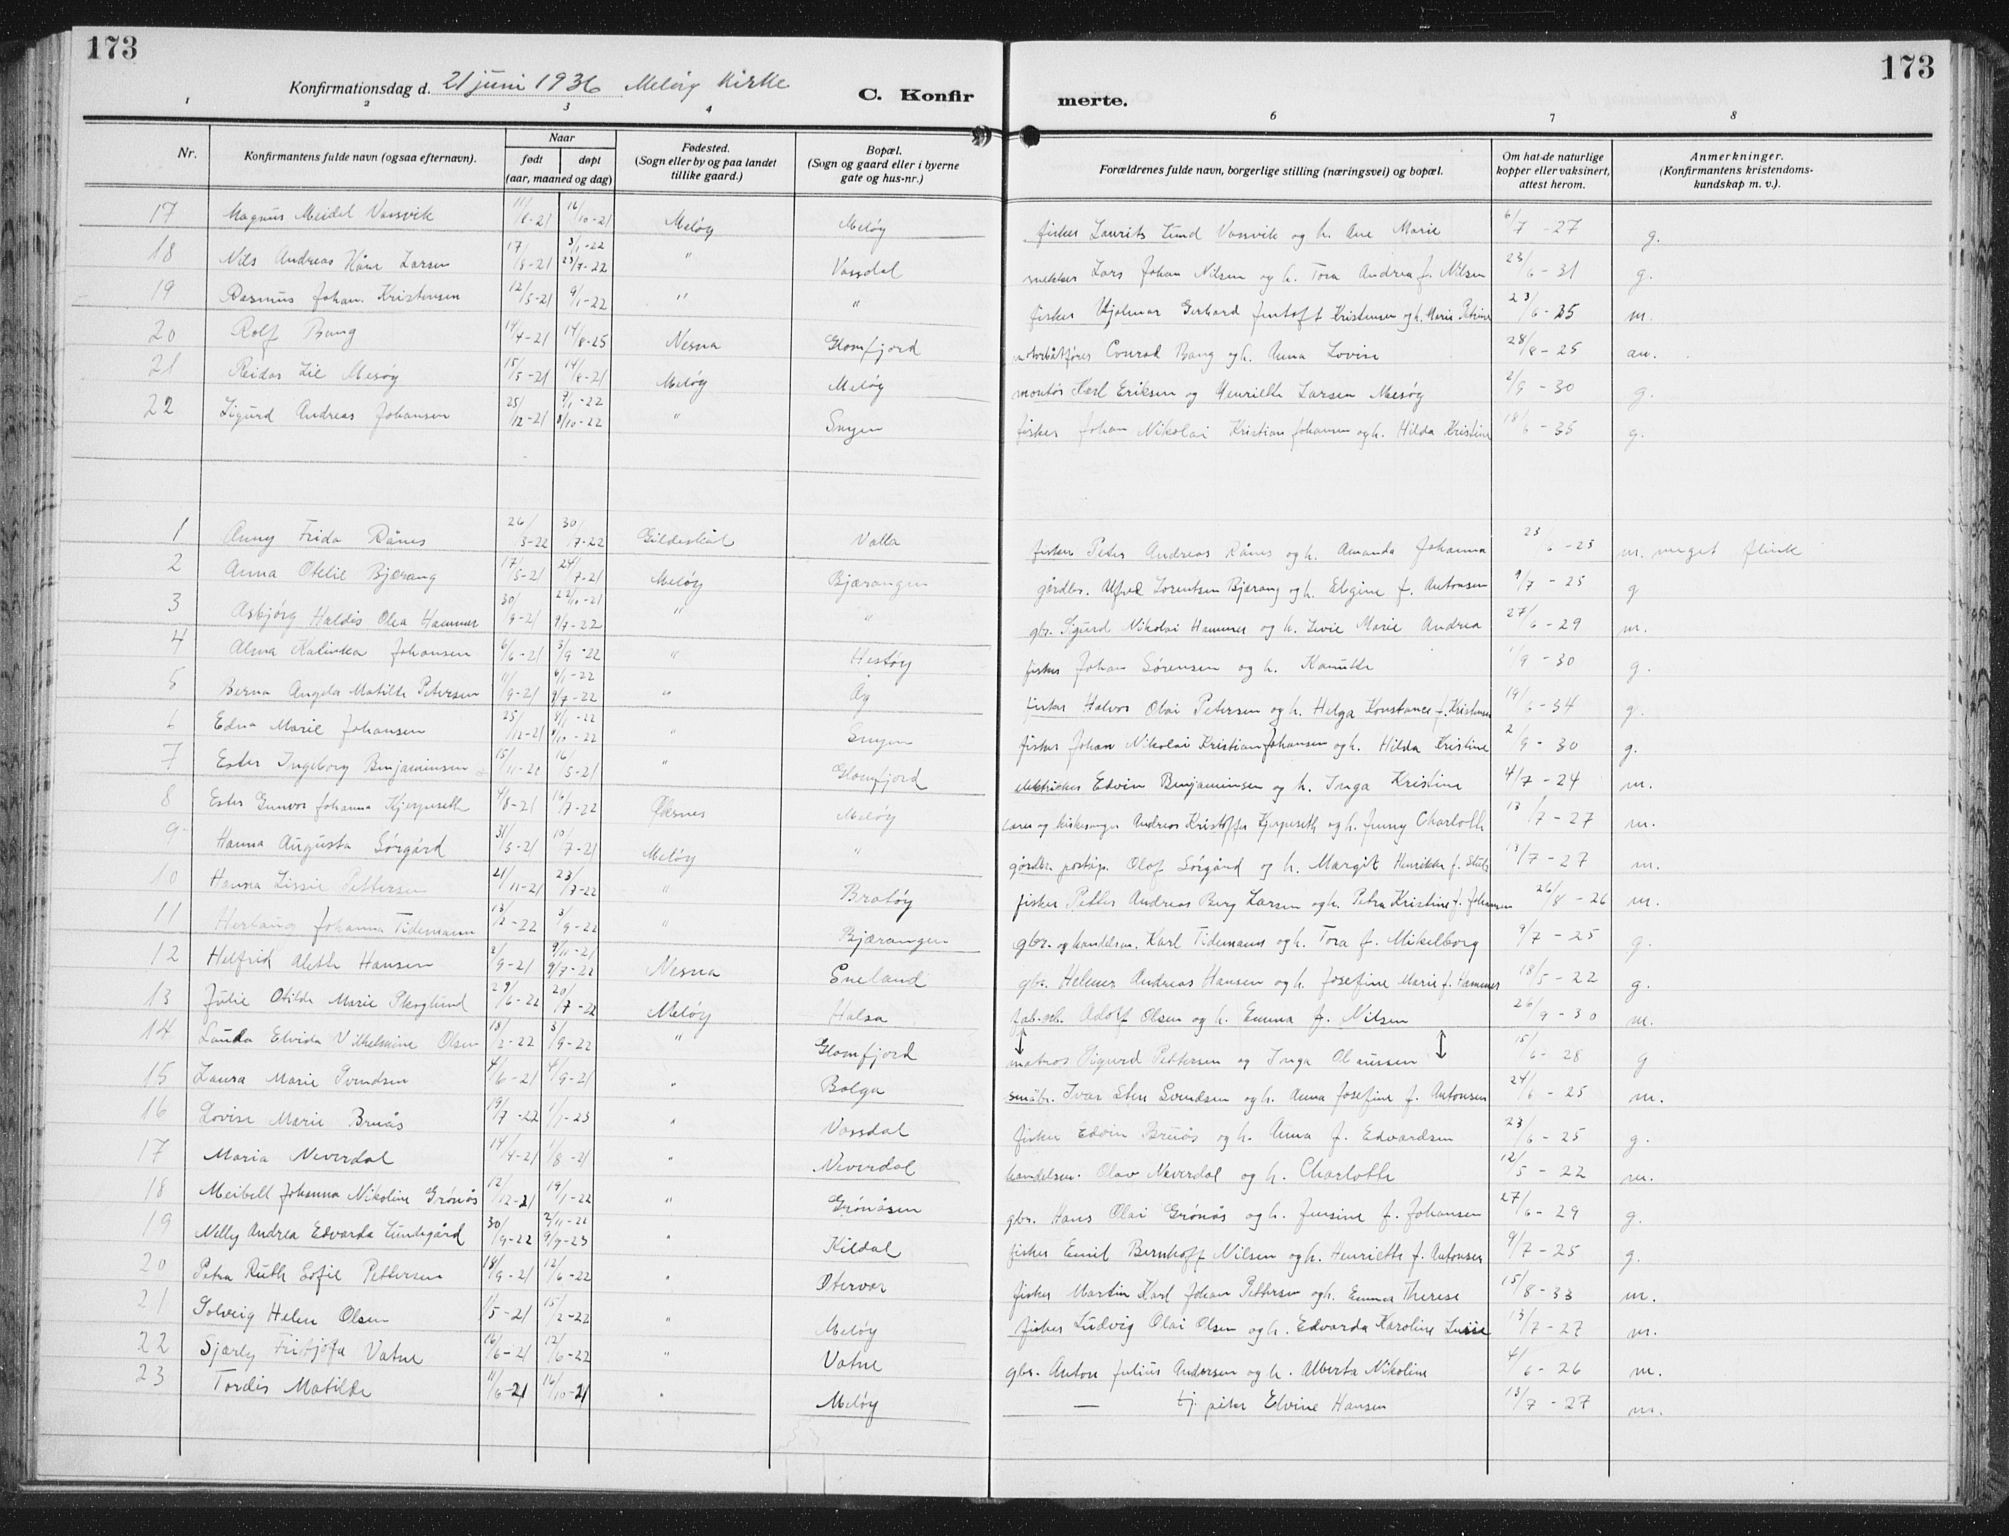 173
173
Konfirmationsdag d. 21 juni 1936 Meløy Kirke
C. Konfirmerte.
1 2 3 4 6 7 8
Nr.
Konfirmantens fulde navn (ogsaa efternavn).
Naar født døpt (aar, maaned og dag)
Fødested. (Sogn eller by og paa landet tillike gaard.)
Bopæl. (Sogn og gaard eller i byerne gate og hus-nr.)
Forældrenes fulde navn, borgerlige stilling (næringsvei) og bopæl.
Om hat de naturlige kopper eller vaksinert, attest herom.
Anmerkninger. (Konfirmantens kristendoms-kundskap m. v.).
17 Magnus Meidel Vassvik 11/8-21 16/10-21 Meløy Meløy fisker Laurits Lund Vassvik og h. Ane Marie 6/7-27 g.
18 Nils Andreas Larsen 17/3-21 3/1-22 23/7-22 " Vassdal snekker Lars Johan Nilsen og h. Tora Andrea f. Nilsen 23/6-31 g.
19 Rasmus Johan Kristensen 12/5-21 9/1-22 " " fisker Hjalmar Gerhard Jentoft Kristensen og h. Marie Petrine 23/6-35 m.
20 Rolf Bang 14/4-21 14/8-25 Nesna Glomfjord motorbåtfører Conrad Bang og h. Anna Lovise 28/8-25 au.
21 Reidar Lie Mesøy 15/5-21 14/8-21 Meløy Meløy montør Karl Eriksen og Henriette Larsen Mesøy 2/9-30 g.
22 Sigurd Andreas Johansen 25/12-21 7/1-22 8/10-22 " Engen fisker Johan Nikolai Kristian Johansen og h. Hilda Kristine 18/6-35 g.
1 Anny Frida Rånes 26/3-22 30/7-22 Gildeskål Valla fisker Peter Andreas Rånes og h. Amanda Johanna 23/6-25 m. meget flink
2 Anna Otelie Bjærang 17/5-21 24/7-21 Meløy Bjærangen gårdbr. Alfred Lorentsen Bjærang og h. Elgine f. Antonsen 9/7-25 g
3 Asbjørg Haldis Olea Hammer 30/9-21 22/10-21 9/7-22 " " gbr. Sigurd Nikolai Hammer og h. Levie Marie Andrea 27/6-29 m.
4 Alma Kalinka Johansen 6/6-21 3/9-22 " Hestøy fisker Johan Sørensen og h. Kanutte 1/9-30 g.
5 Berna Angela Matilde Petersen 11/9-21 6/1-22 9/7-22 " Åg fisker Halvor Olai Petersen og h. Helga Konstance f. Kristensen 19/6-34 g.
6 Edna Marie Johansen 25/12-21 7/1-22 8/10-22 " Engen fisker Johan Nikolai Kristian Johansen og h. Hilda Kristine 2/9-30 g.
7 Ester Ingeborg Benjaminsen 15/11-20 16/5-21 " Glomfjord elektriker Edvin Benjaminsen og h. Inga Kristine 4/7-24 m.
8 Ester Gunvor Johanna Kjerpeseth 4/8-21 16/7-22 Øksnes Meløy lærer og kirkesanger Andreas Kristoffer Kjerpeseth og h. Jenny Charlotte 13/7-27 m.
9 Hanna Augusta Sørgård 31/5-21 10/7-21 Meløy " gårdbr. poståp. Olof Sørgård og h. Margit Henrikke f. 13/7-27 m.
10 Hanna Lissie Pettersen 21/11-21 23/7-22 " Bratøy fisker Petter Andreas Berg Larsen og h. Petra Kristine f. Johansen 26/8-26 m.
11 Herlaug Johanna Tidemann 13/2-22 3/9-22 " Bjærangen gbr. og handelsm. Karl Tidemann og h. Tora f. Mikelborg 9/7-25 g.
12 Helfrid Alette Hansen 2/9-21 9/11-21 9/7-22 Nesna Eneland gbr. Helmer Andreas Hansen og h. Josefine Marie f. Hammer 18/5-22 g.
13 Julie Otilde Marie Skoglund 29/6-22 20/7-22 Meløy Halsa fab.arb. Adolf Olsen og h. Emma f. Nilsen 26/9-30 m.
14 Lauda Elvida Vilhelmine Olsen 18/2-22 3/9-22 " Glomfjord matros Sigurd Pettersen og Inga Olaussen 15/6-28 g
15 Laura Marie Svendsen 4/6-21 4/9-21 " Bolga småbr. Ivar Sten Svendsen og h. Anna Josefine f. Antonsen 24/6-25 m.
16 Lovise Marie Bruås 19/7-22 1/1-23 " Vassdal fisker Edvin Bruås og h. Anna f. Edvardsen 23/6-25 g.
17 Maria Neverdal 14/4-21 1/8-21 " Neverdal handelsm. Olav Neverdal og h. Charlotte 12/5-22 m.
18 Meibell Johanna Nikoline Grønås 12/12-21 19/1-22 " Grønåsen gbr. Hans Olai Grønås og h. Jensine f. Johansen 27/6-29 g.
19 Nelly Andrea Edvarda Lundegård 30/9-22 2/11-22 9/9-23 " Kildal fisker Emil Bernhoff Nilsen og h. Henriette f. Antonsen 9/7-25 g.
20 Petra Ruth Sofie Pettersen 18/9-21 12/6-22 " Otervær fisker Martin Karl Johan Pettersen og h. Emma Therese 15/8-33 m.
21 Solveig Helen Olsen 1/5-21 15/2-22 " Meløy fisker Ludvig Olai Olsen og h. Edvarda Karoline Lusie 13/7-27 m.
22 Sjærly Fritjofa Vatne 16/6-21 12/6-22 " Vatne gbr. Anton Julius Andersen og h. Alberta Nikoline 4/6-26 m.
23 Tordis Matilde 11/6-21 16/10-21 " Meløy — tj. pike Elvine Hansen 13/7-27 m.